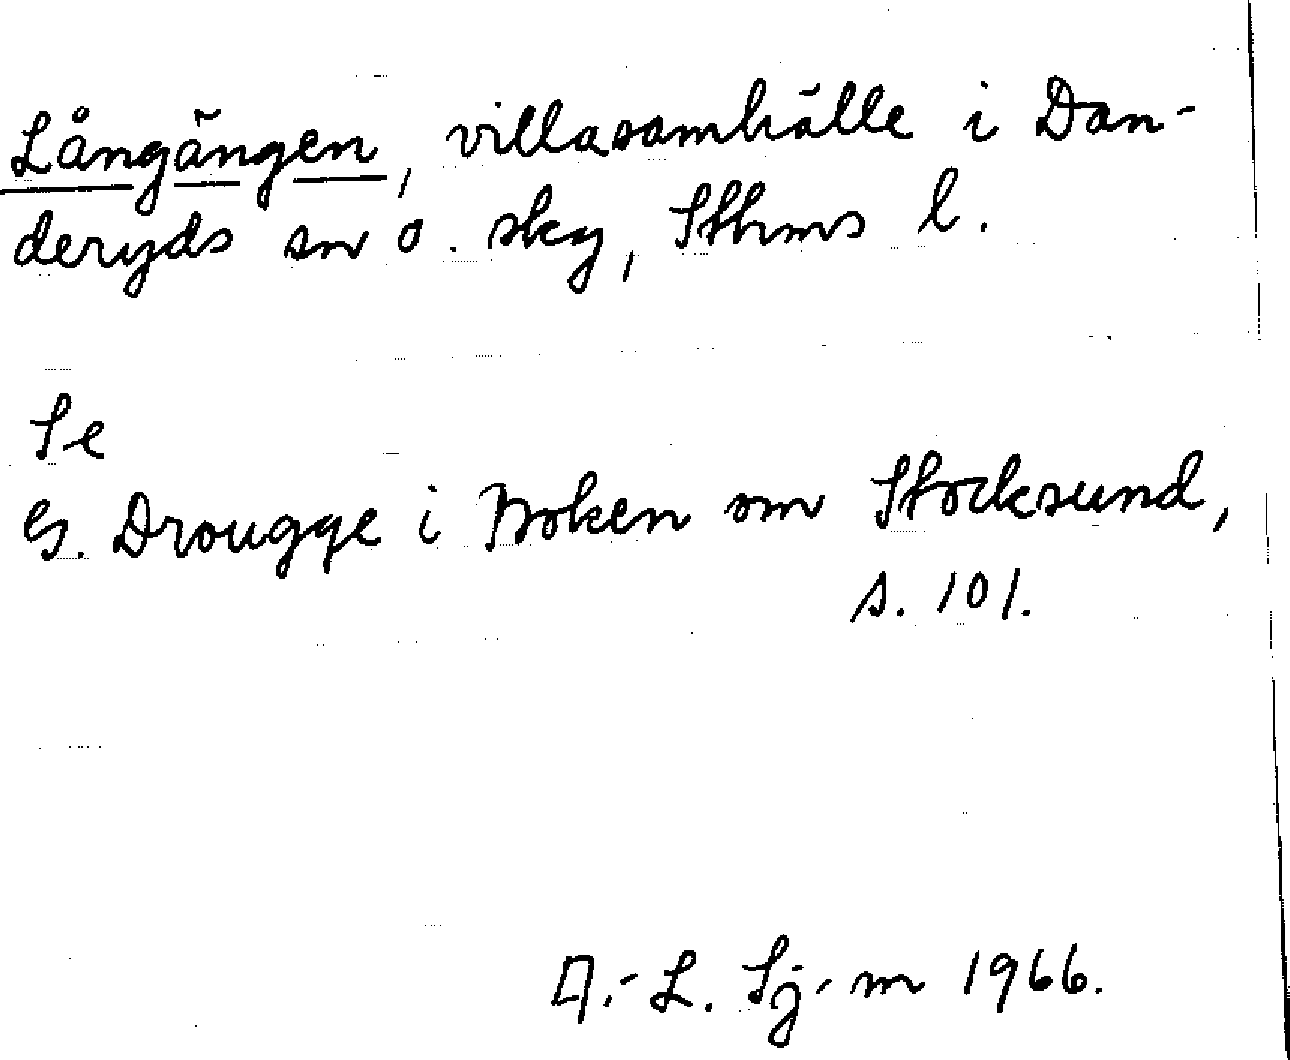 Långängen, villasamhälle i Dan-
deryds sn o. skg, Sthms l.
Se
G. Drougge i Boken om Stocksund,
s. 101.
A.-L. Sj-m 1966.